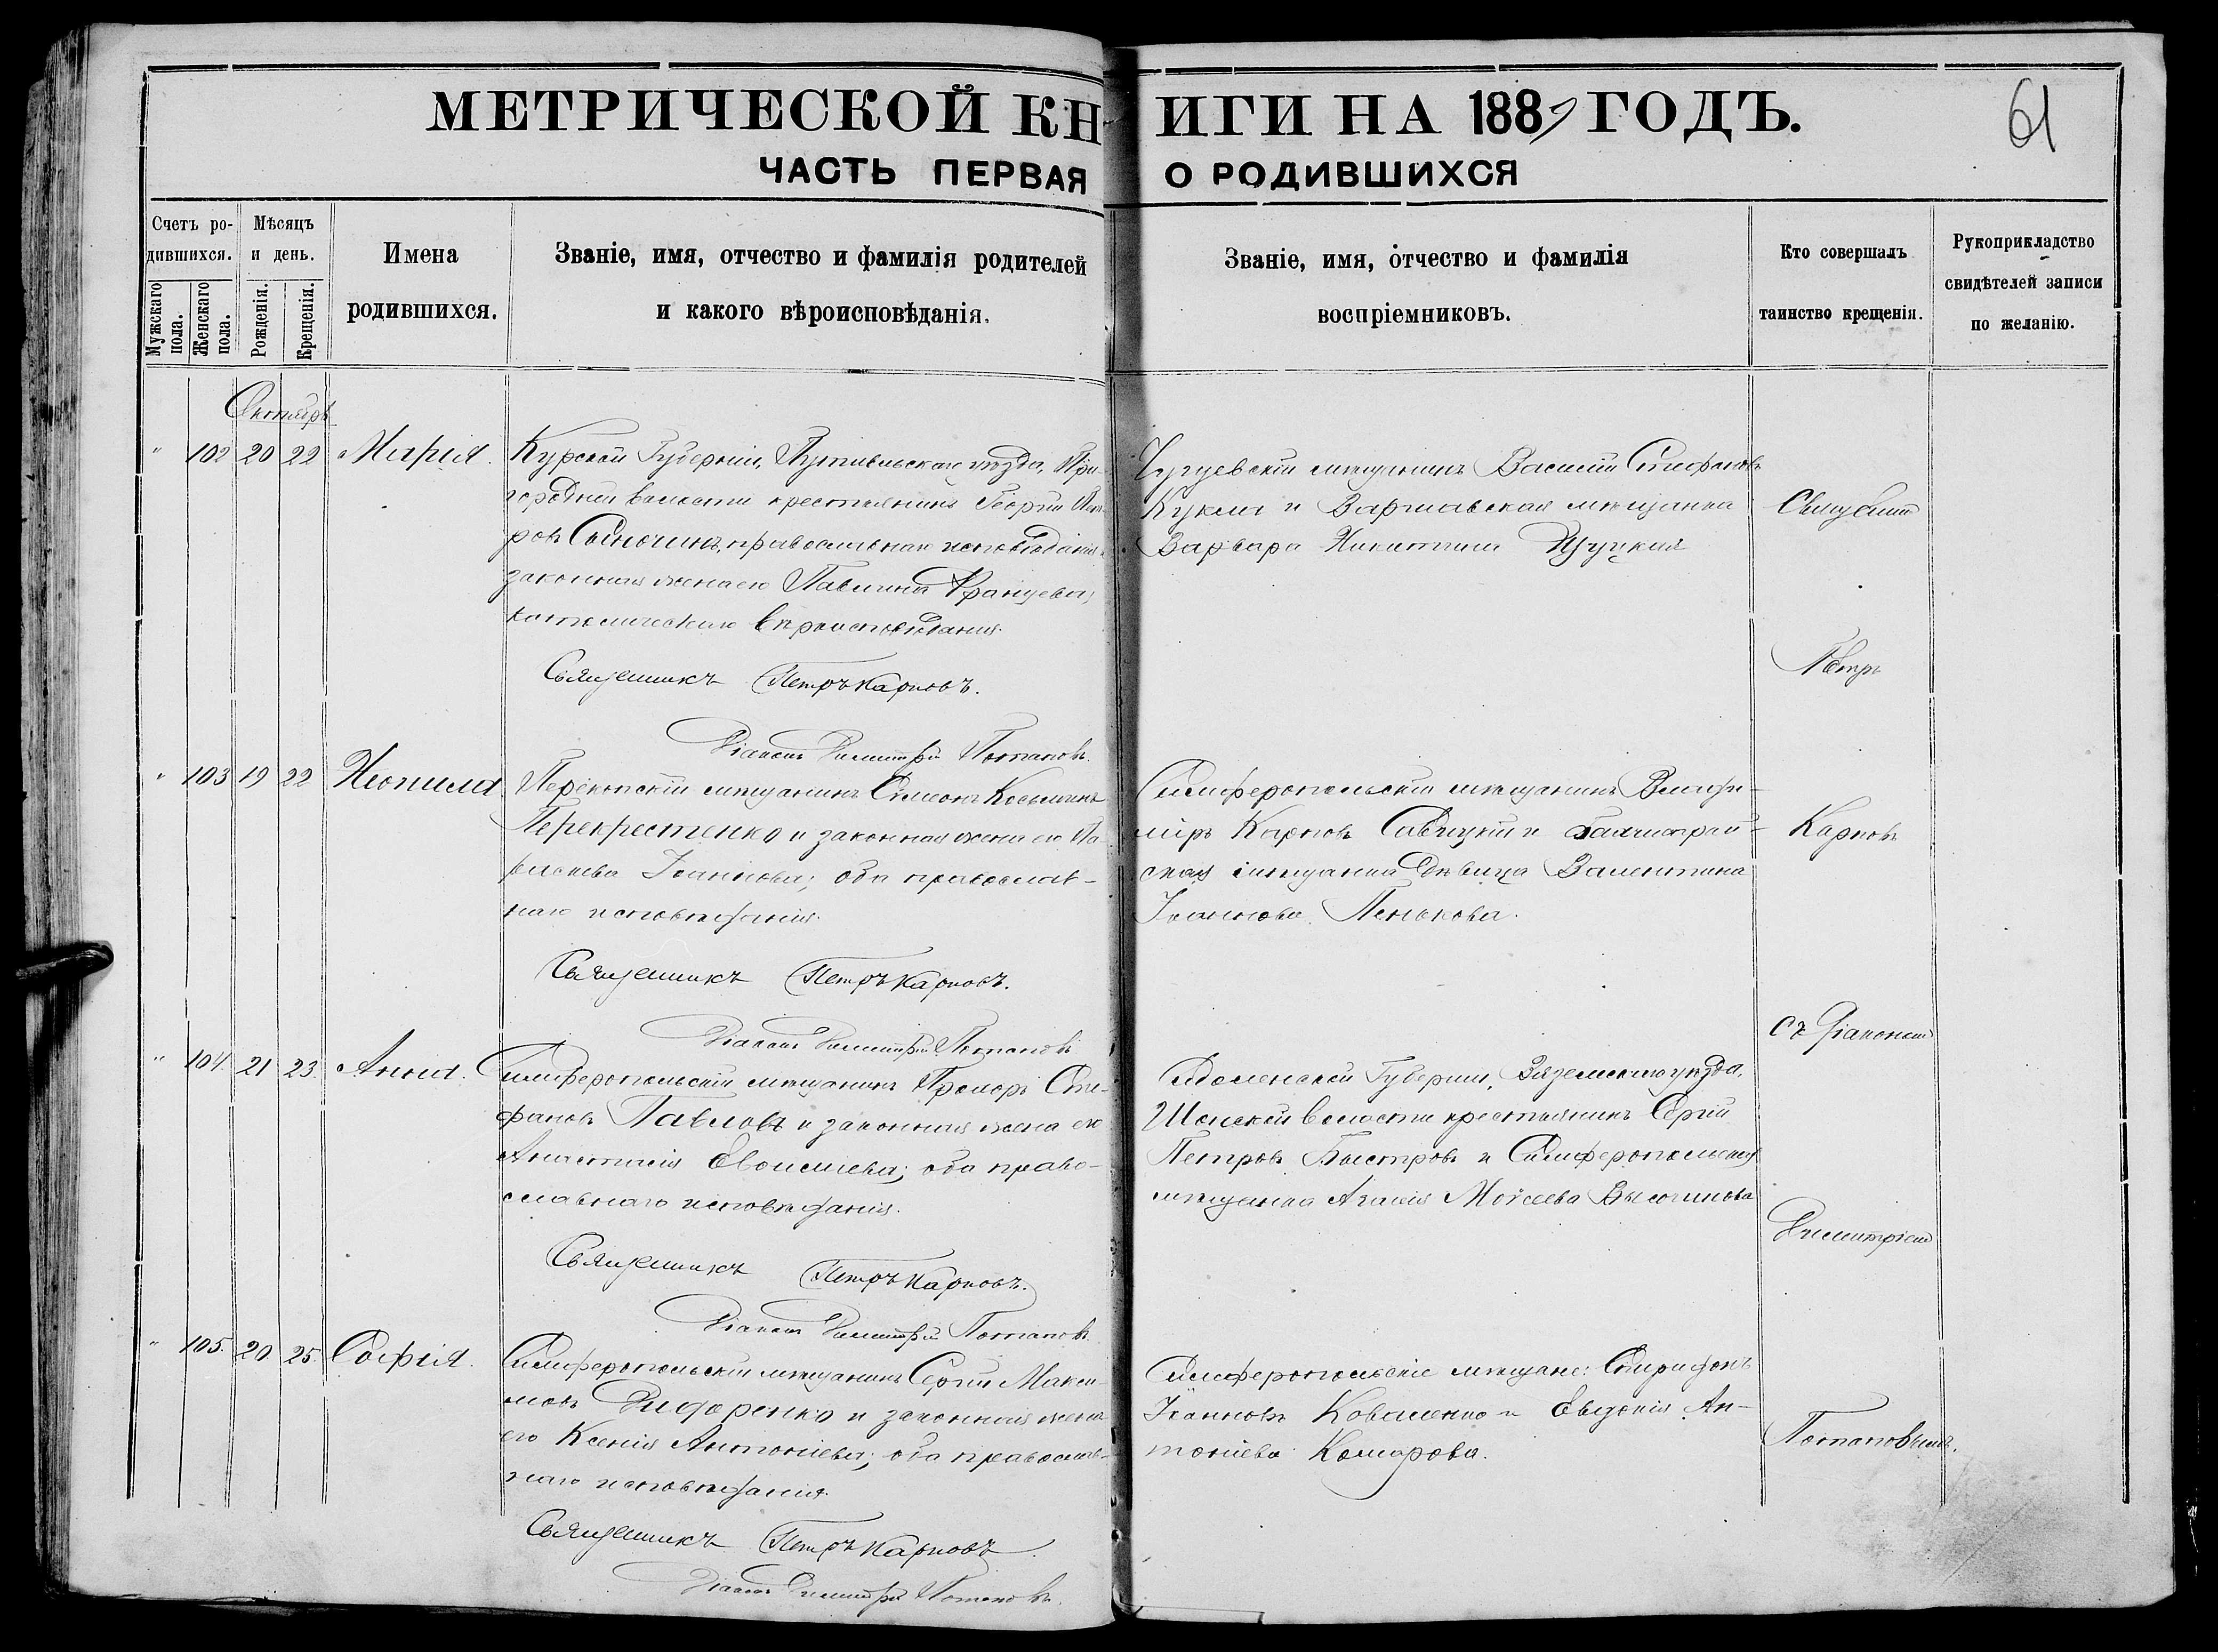 МЕТРИЧЕСКОЙ КНИГИ НА 1887 ГОДЪ.
61
ЧАСТЬ ПЕРВАЯ О РОДИВШИХСЯ
Счетъ родившихся.
Мужскаго пола.
Женскаго пола.
Мѣсяцъ и день.
Рожденія.
Крещенія.
Имена
родившихся.
Званіе, имя, отчество и фамилія родителей
и какого вѣроисповѣданія.
Званіе, имя, отчество и фамилія
воспріемниковъ.
Кто совершалъ
таинство крещенія.
Рукоприкладство
свидѣтелей записи
по желанію.
Октябрь
" 102 20 22 Марія.
Курской Губерніи, Путивльскаго уѣзда, При-
городней волости крестьянинъ Георгій Пет-
ровъ православнаго исповѣданія
законная жена его Павлина Францева,
католическаго вѣроисповѣданія.
Священникъ Петръ Карповъ.
Діаконъ Димитрій Потаповъ.
Чугуевскій мѣщанинъ Василій Стефановъ
Кукла и Варшавская мѣщанка
Варвара Никитина
" 103 19 22 Неонила
Перекопскій мѣщанинъ Симеонъ Косьминъ
Перекрестенко и законная жена его Па-
раскева Іоаннова; оба православ-
наго исповѣданія.
Священникъ Петръ Карповъ.
Діаконъ Димитрій Потаповъ
Симферопольскій мѣщанинъ Влади-
міръ Карповъ Савицкій и
ская мѣщанка дѣвица Валентина
Іоаннова Пенькова.
" 104 21 23 Анна.
Симферопольскій мѣщанинъ Прохоръ Сте-
фановъ Павловъ и законная жена его
Анастасія оба право-
славнаго исповѣданія.
Священникъ Петръ Карповъ.
Діаконъ Димитрій Потаповъ
Смоленской Губерніи, Вяземскаго уѣзда,
волости крестьянинъ Сергій
Петровъ Быстровъ и Симферопольская
мѣщанка Агафія Моисеева
" 105. 20 25. Софія.
Симферопольскій мѣщанинъ Сергій Макси-
мовъ и законная жена
его Ксенія Антоніева; оба православ-
наго исповѣданія.
Священникъ Петръ Карповъ
Діаконъ Димитрій Потаповъ.
Симферопольскіе мѣщане: Спиридонъ
Іоанновъ Коваленко и Евдокія Ан-
тоніева Комарова.
Священникъ
Петръ
Карповъ
съ Діакономъ
Димитріемъ
Потаповымъ.